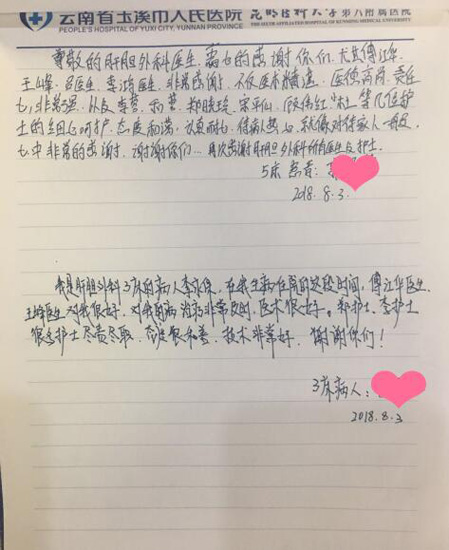 云南省玉溪市人民医院 昆明医科大学第六附属医院
PEOPLE'S HOSPITAL OF YUXI CITY, YUNNAN PROVINCE THE SIXTH AFFILIATED HOSPITAL OF KUNMING MEDICAL UNIVERSITY
尊敬的肝胆外科医生,衷心的感谢你们,尤其傅江华
医生,李鸿医生,非常感谢,不仅医术精湛,医德高尚,责任
心非常强,以及李蓉
士的细心呵护,态度和蔼,认真耐心,待病人热心,就像对待家人一般
心中非常的感谢,谢谢你们…再次感谢肝胆外科所有医生与护士
5床 患者:
2018.8.3
我是肝胆外科3床的病人李永保,在我生病住院的这段时间,傅江华医生,
王峰医生对我很好,对我的病治疗非常及时,医术很好。郑护士,李护士
很多护士尽责尽职,态度很和善,技术非常好,谢谢你们!
3床病人:
2018.8.3